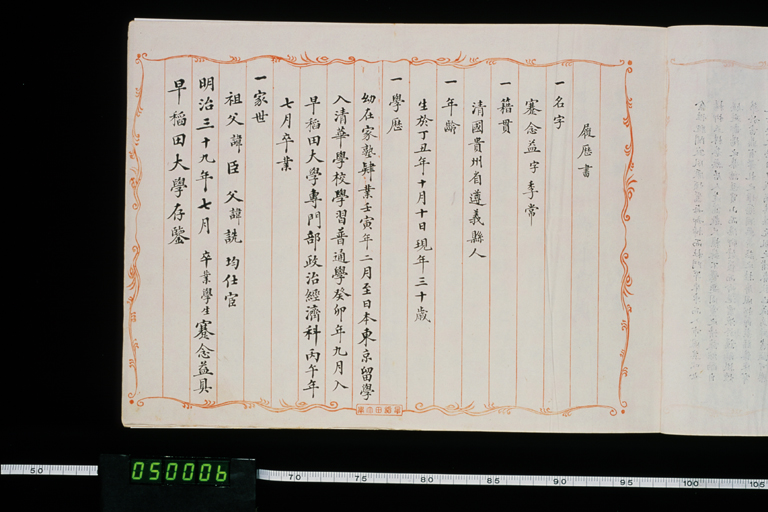 履歴書
一名字
蹇念益字季常
一籍貫
清國貴州省遵義縣人
一年齢
生於丁丑年十月十日現年三十歳
一學歴
幼在家塾肄業壬寅年二月至日本東京留學
入清華學校學習普通學癸卯年九月入
早稻田大學專門部政治經濟科丙午年
七月卒業
一家世
祖父諱臣 父諱詵 均仕宦
明治三十九年七月 卒業學生蹇念益具
早稻田大學存鑒
050006
50
70
75
80
85
90
95
100
105